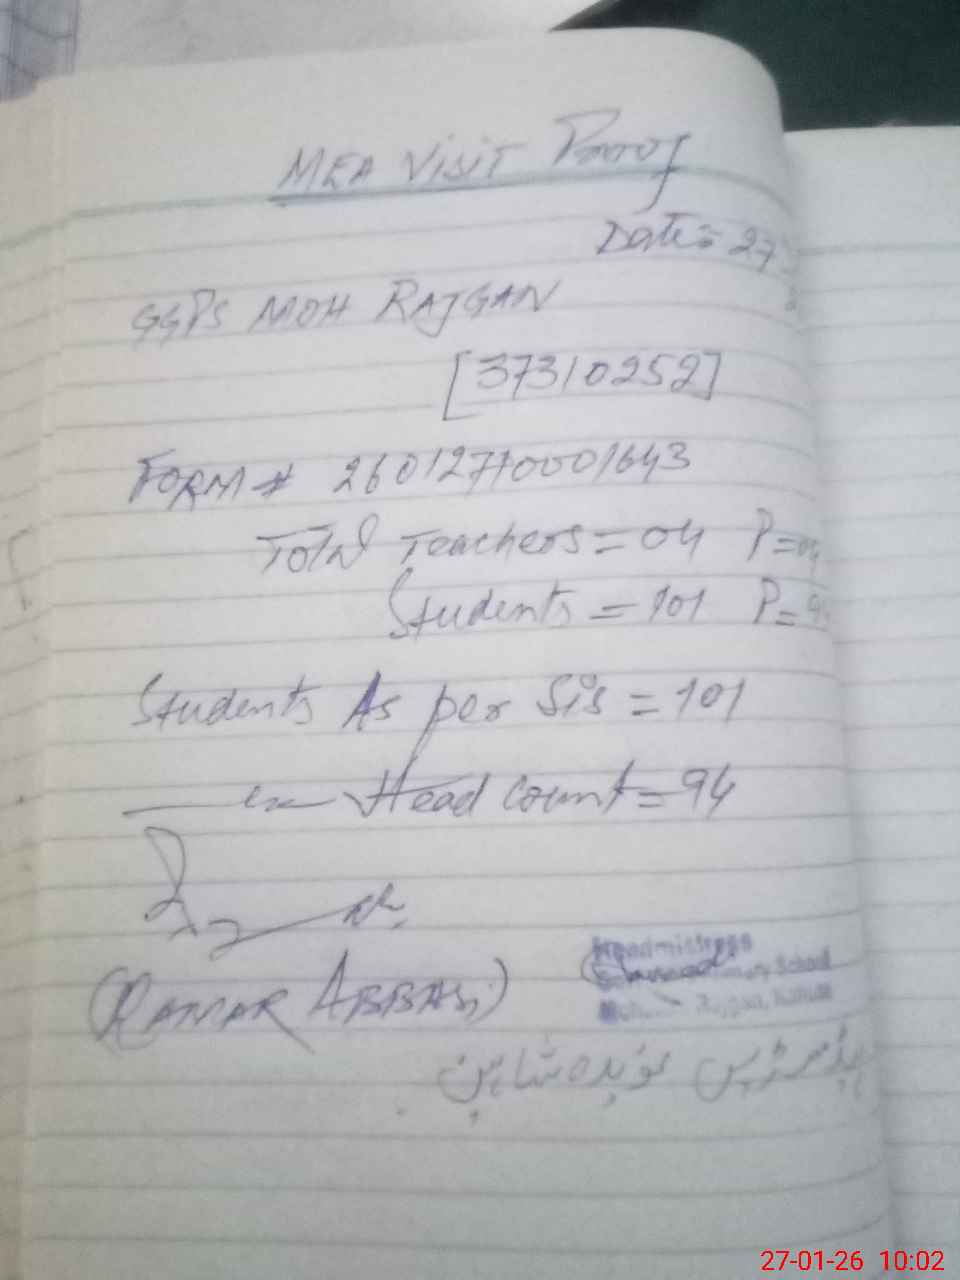 MEA Visit Proof
Date = 27
GGPS MOH RAJGAN
[37310252]
FORM # 26012770001643
Total Teachers = 04 P=04
Students = 101 P=9
Students As per Sis = 101
Head count = 94
(QAMAR ABBAS)
Headmistress
School
ہیڈمسٹریس نویدہ شاہین
27-01-26 10:02